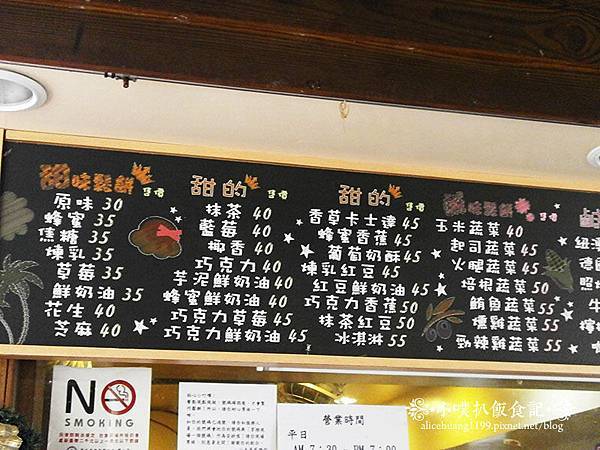 甜味鬆餅 售價
原味 30
蜂蜜 35
焦糖 35
煉乳 35
草莓 35
鮮奶油 35
花生 40
芝麻 40
甜的 售價
抹茶 40
藍莓 40
椰香 40
巧克力 40
芋泥鮮奶油 40
蜂蜜鮮奶油 40
巧克力草莓 45
巧克力鮮奶油 45
甜的 售價
香草卡士達 45
蜂蜜香蕉 45
葡萄奶酥 45
煉乳紅豆 45
紅豆鮮奶油 45
巧克力香蕉 50
抹茶紅豆 50
冰淇淋 55
鹹味鬆餅 售價
玉米蔬菜 40
起司蔬菜 45
火腿蔬菜 45
培根蔬菜 50
鮪魚蔬菜 55
燻雞蔬菜 55
勁辣雞蔬菜 55
鹹
紐澳
德國
照燒
牛
NO
SMOKING
營業時間
平日
AM 7:30 - PM 7:00
噗噗趴飯食記
alicehuang1199.pixnet.net/blog